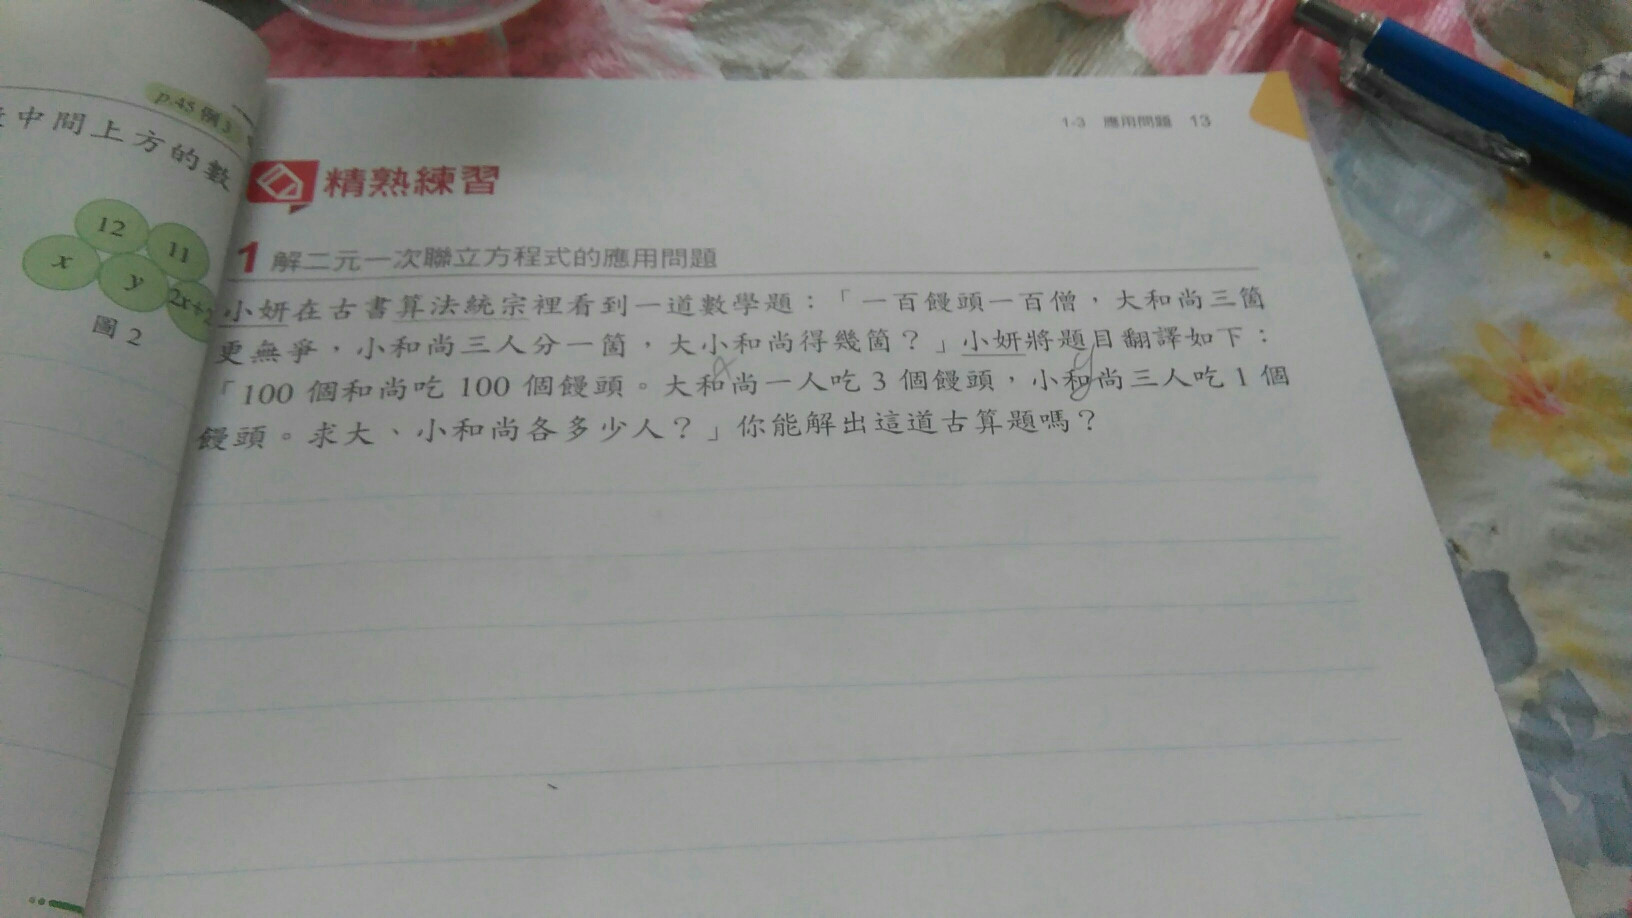 中間上方的數
p.45 例3
12
11
x
y
2x+2
圖 2
1-3 應用問題 13
精熟練習
1 解二元一次聯立方程式的應用問題
小妍在古書算法統宗裡看到一道數學題：「一百饅頭一百僧，大和尚三箇
更無爭，小和尚三人分一箇，大小和尚得幾箇？」小妍將題目翻譯如下：
x
y
「100 個和尚吃 100 個饅頭。大和尚一人吃 3 個饅頭，小和尚三人吃 1 個
饅頭。求大、小和尚各多少人？」你能解出這道古算題嗎？